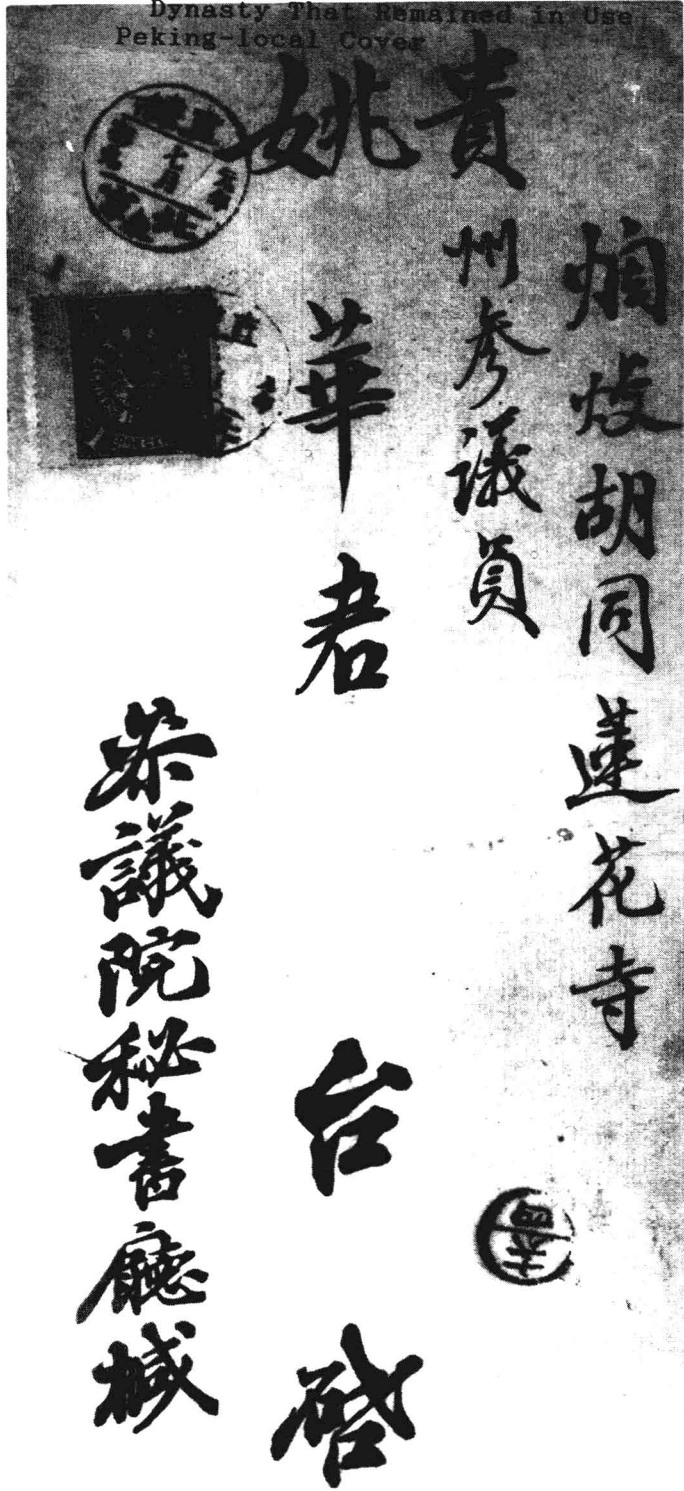 Dynasty That Remained in Use
Peking-local Cover
爛煐胡同蓮花寺
貴州參議員
姚華君台啓
參議院秘書廳椷
七月